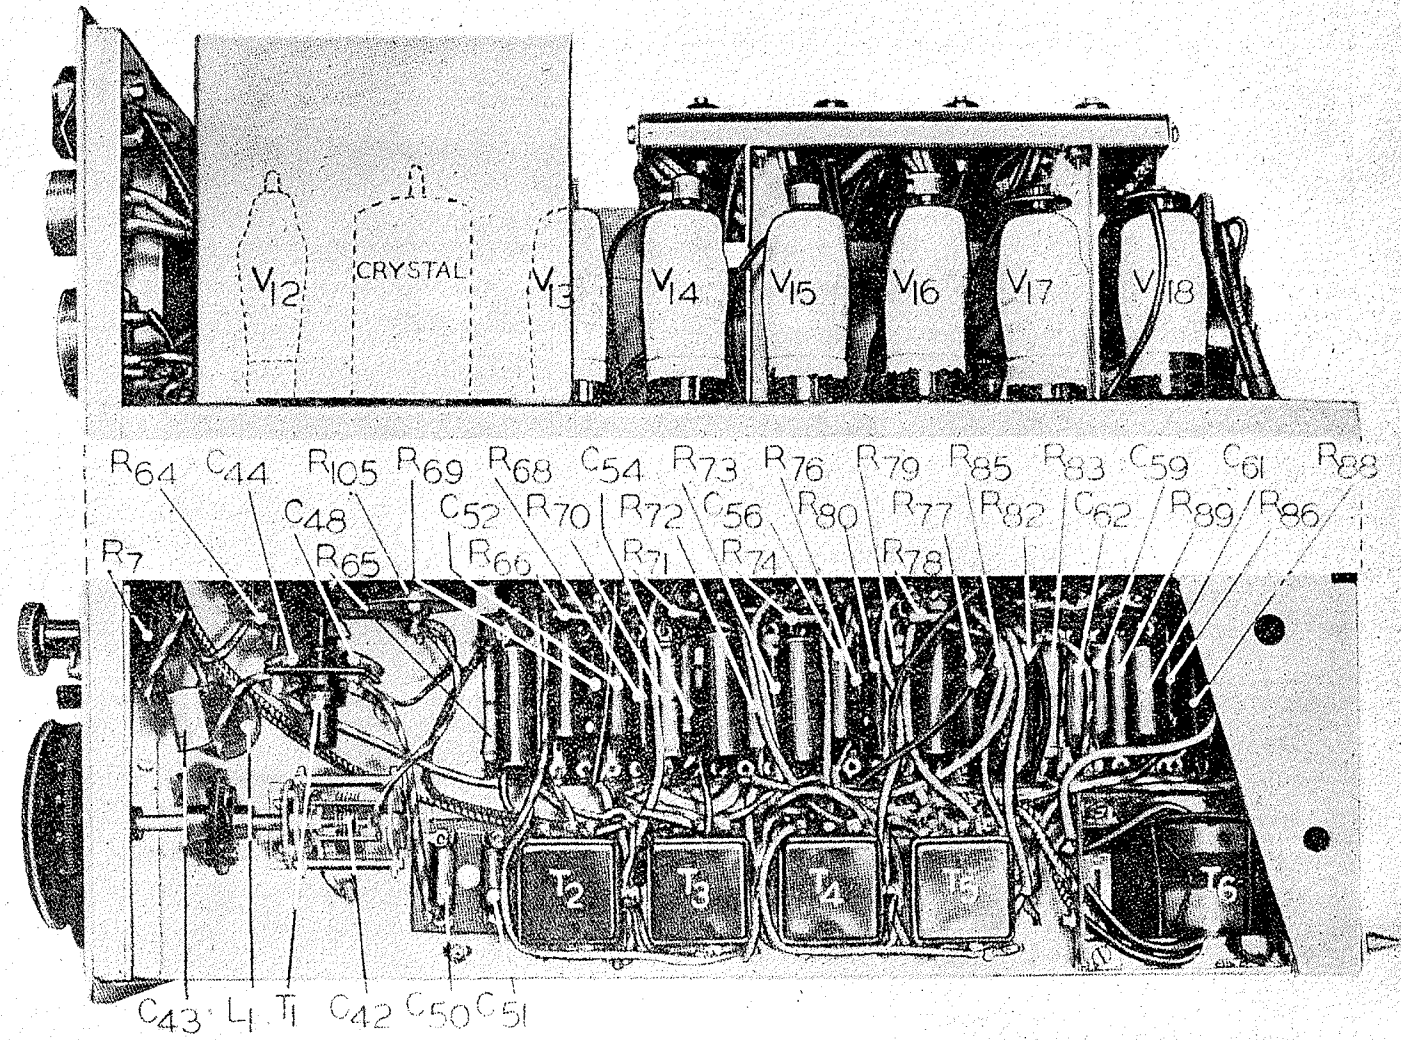 V12 CRYSTAL V13 V14 V15 V16 V17 V18
R64 C44 R105 R69 R68 C54 R73 R76 R79 R85 R83 C59 C61 R88
C48 C52 R70 R72 C56 R80 R77 R82 C62 R89 R86
R7 R65 R66 R71 R74 R78
T2 T3 T4 T5 T6
C43 L1 T1 C42 C50 C51